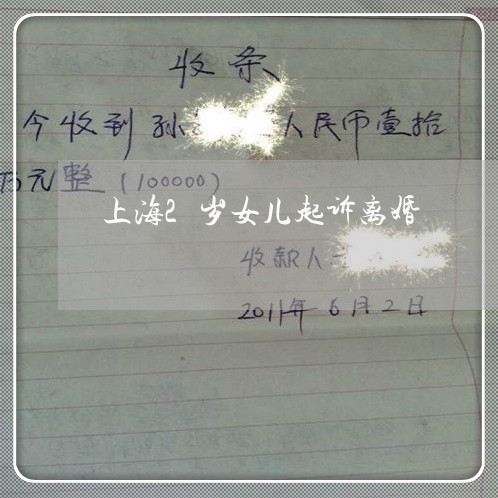 收条
今收到孙 人民币壹拾
万元整（100000）
上海2 岁女儿起诉离婚
收款人
2011年6月2日